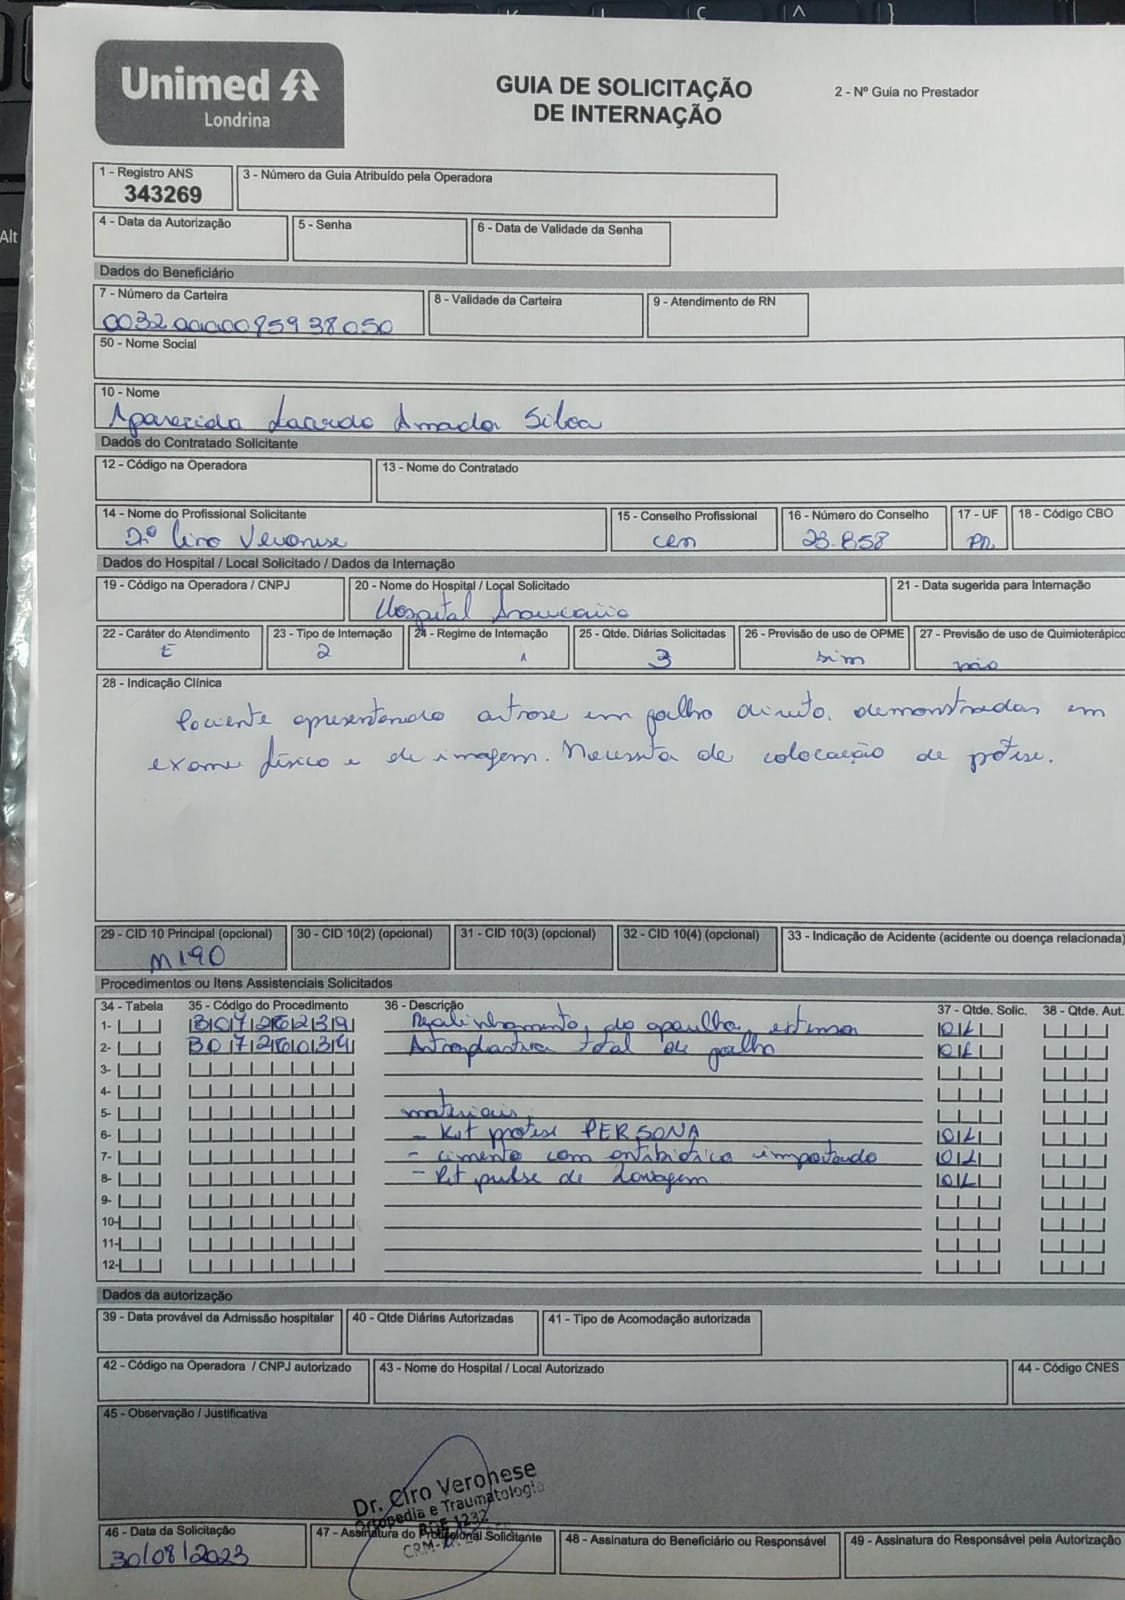 Unimed
Londrina
GUIA DE SOLICITAÇÃO
DE INTERNAÇÃO
2 - Nº Guia no Prestador
1 - Registro ANS
343269
3 - Número da Guia Atribuído pela Operadora
4 - Data da Autorização
5 - Senha
6 - Data de Validade da Senha
Dados do Beneficiário
7 - Número da Carteira
8 - Validade da Carteira
9 - Atendimento de RN
50 - Nome Social
10 - Nome
Aparecida Amador Silva
Dados do Contratado Solicitante
12 - Código na Operadora
13 - Nome do Contratado
14 - Nome do Profissional Solicitante
15 - Conselho Profissional
16 - Número do Conselho
17 - UF
18 - Código CBO
Drº Ciro Veronese
CRM
23.858
PR
Dados do Hospital / Local Solicitado / Dados da Internação
19 - Código na Operadora / CNPJ
20 - Nome do Hospital / Local Solicitado
21 - Data sugerida para Internação
Hospital Araucária
22 - Caráter do Atendimento
23 - Tipo de Internação
24 - Regime de Internação
25 - Qtde. Diárias Solicitadas
26 - Previsão de uso de OPME
27 - Previsão de uso de Quimioterápico
E
2
1
3
sim
não
28 - Indicação Clínica
Paciente apresentando artrose em joelho direito, demonstradas em
exame físico e de imagem. Necessita de colocação de prótese.
29 - CID 10 Principal (opcional)
30 - CID 10(2) (opcional)
31 - CID 10(3) (opcional)
32 - CID 10(4) (opcional)
33 - Indicação de Acidente (acidente ou doença relacionada)
M190
Procedimentos ou Itens Assistenciais Solicitados
34 - Tabela
35 - Código do Procedimento
36 - Descrição
37 - Qtde. Solic.
38 - Qtde. Aut.
1- 30726239 Realinhamento do aparelho extensor 01
2- 30726034 Artroplastia total de joelho 01
3-
4-
5- materiais
6- - Kit protese PERSONA 01
7- - cimento com antibiótico importado 01
8- - Kit pulse de lavagem 01
9-
10-
11-
12-
Dados da autorização
39 - Data provável da Admissão hospitalar
40 - Qtde Diárias Autorizadas
41 - Tipo de Acomodação autorizada
42 - Código na Operadora / CNPJ autorizado
43 - Nome do Hospital / Local Autorizado
44 - Código CNES
45 - Observação / Justificativa
Dr. Ciro Veronese
Ortopedia e Traumatologia
RQE 1232
CRM-
46 - Data da Solicitação
47 - Assinatura do Profissional Solicitante
48 - Assinatura do Beneficiário ou Responsável
49 - Assinatura do Responsável pela Autorização
30/08/2023